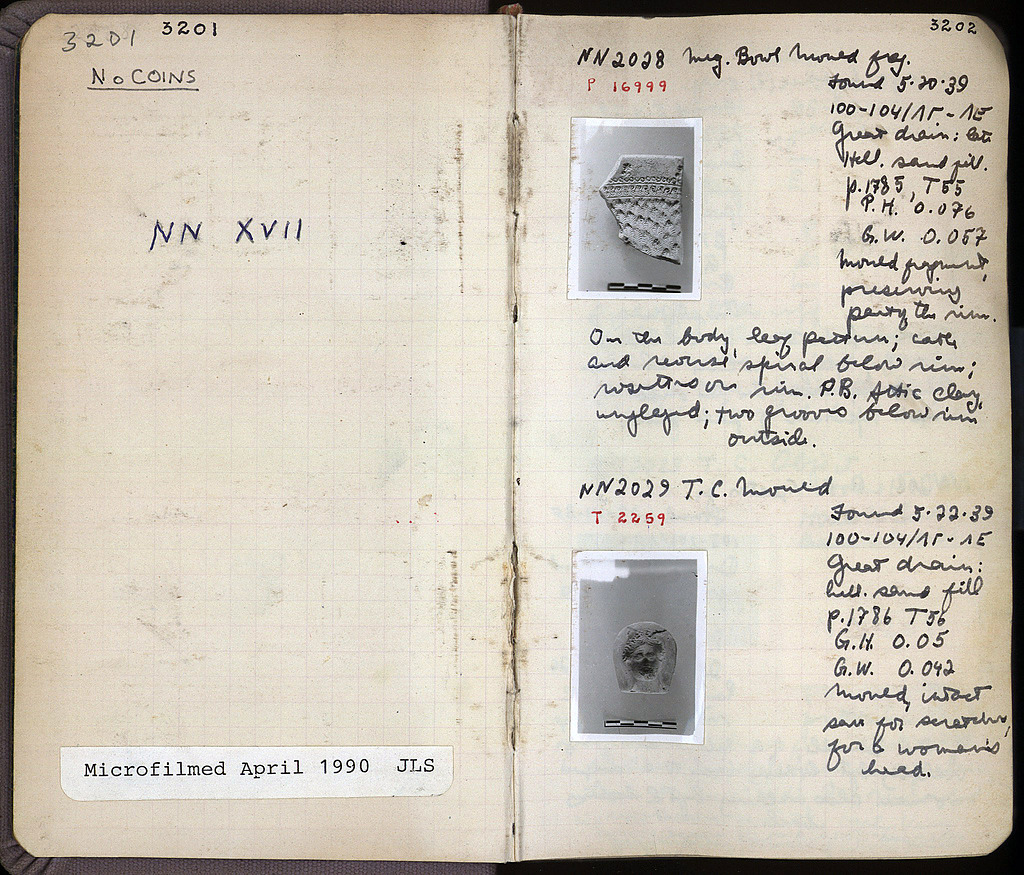 3201 3201
No COINS
NN XVII
Microfilmed April 1990 JLS
3202
NN2028 Meg. Bowl Mould frag.
P 16999
Found 5-20-39
100-104/ΛΓ-ΛΕ
Great drain: late
Hell. sand fill.
p.1785, T55
P.H. 0.076
G.W. 0.057
Mould fragment,
preserving
part of the rim.
On the body, leaf pattern; cable
and reverse spiral below rim;
rosettes on rim. P.B. Attic clay,
unglazed; two grooves below rim
outside.
NN2029 T.C. Mould
T 2259
Found 5-22-39
100-104/ΛΓ-ΛΕ
Great drain:
hell. sand fill
p.1786 T56
G.H. 0.05
G.W. 0.042
Mould, intact
save for scratches,
for a woman's
head.